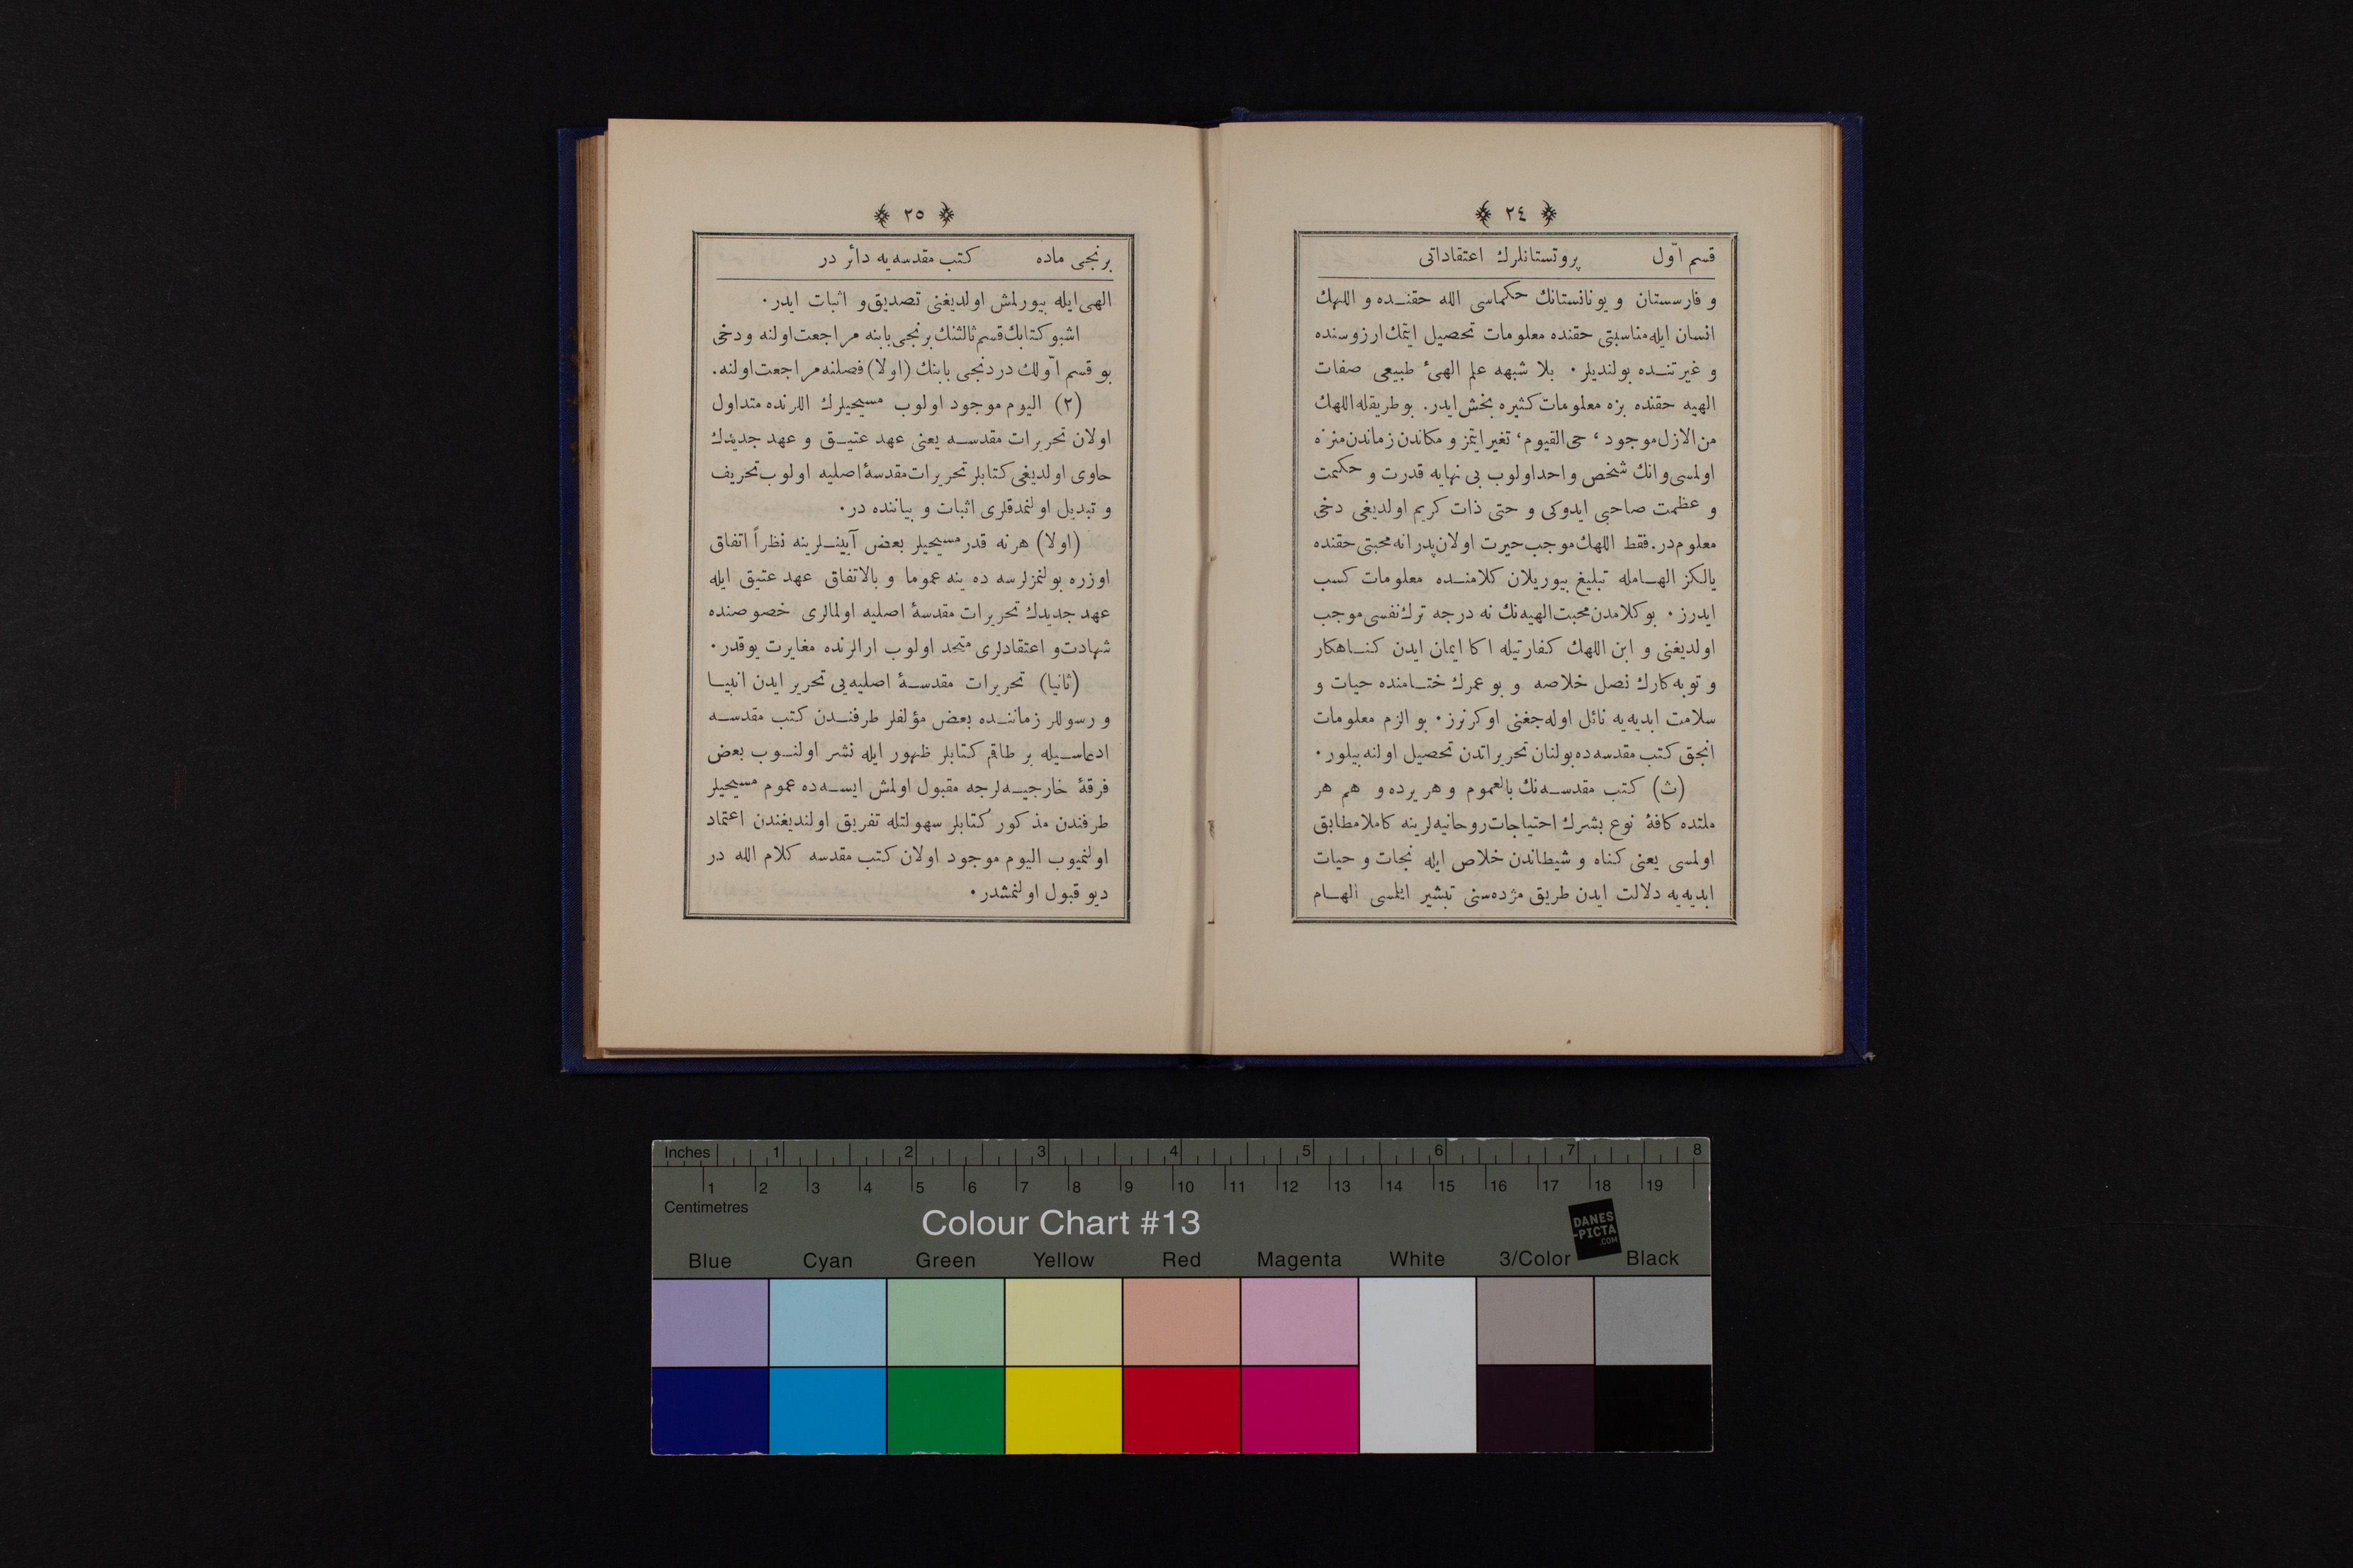 ﴿ ٢٤ ﴾
قسم اوّل پروتستانلرك اعتقاداتی
و فارسستان و یونانستانك حكماسی الله حقنده و اللهك
انسان ایله مناسبتی حقنده معلومات تحصیل ایتمك ارزوسنده
و غیرتنده بولندیلر. بلا شبهه علم الهیٔ طبیعی صفات
الهیه حقنده بزه معلومات كثیره بخش ایدر. بو طریقله اللهك
من الازل موجود، حی القیوم، تغیر ایتمز و مكاندن زماندن منزه
اولمسی و انك شخص واحد اولوب بی نهایه قدرت و حكمت
و عظمت صاحبی ایدوكی و حتی ذات كریم اولدیغی دخی
معلوم در. فقط اللهك موجب حیرت اولان پدرانه محبتی حقنده
یالكز الهامله تبلیغ بیوریلان كلامنده معلومات كسب
ایدرز. بو كلامدن محبت الهیه نك نه درجه ترك نفسی موجب
اولدیغنی و ابن اللهك كفارتیله اكا ایمان ایدن كناهكار
و توبه كارك نصل خلاصه و بو عمرك ختامنده حیات و
سلامت ابدیه یه نائل اوله جغنی اوكرنرز. بو الزم معلومات
انجق كتب مقدسه ده بولنان تحریراتدن تحصیل اولنه بیلور.
(ث) كتب مقدسه نك بالعموم و هر یرده و هم هر
ملتده كافۀ نوع بشرك احتیاجات روحانیه لرینه كاملا مطابق
اولمسی یعنی كناه و شیطاندن خلاص ایله نجات و حیات
ابدیه یه دلالت ایدن طریق مژده سنی تبشیر ایلمسی الهام
﴿ ٢٥ ﴾
برنجی ماده كتب مقدسه یه دأر در
الهی ایله بیورلمش اولدیغنی تصدیق و اثبات ایدر.
اشبو كتابك قسم ثالثنك برنجی بابنه مراجعت اولنه و دخی
بو قسم اوّلك دردنجی بابنك (اولا) فصلنه مراجعت اولنه.
(٢) الیوم موجود اولوب مسیحیلرك اللرنده متداول
اولان تحریرات مقدسه یعنی عهد عتیق و عهد جدیدك
حاوی اولدیغی كتابلر تحریرات مقدسۀ اصلیه اولوب تحریف
و تبدیل اولنمدقلری اثبات و بیاننده در.
(اولا) هر نه قدر مسیحیلر بعض آیینلرینه نظراً اتفاق
اوزره بولنمزلرسه ده ینه عموما و بالاتفاق عهد عتیق ایله
عهد جدیدك تحریرات مقدسۀ اصلیه اولمالری خصوصنده
شهادت و اعتقادلری متحد اولوب ارالرنده مغایرت یوقدر.
(ثانیا) تحریرات مقدسۀ اصلیه یی تحریر ایدن انبیا
و رسوللر زماننده بعض مؤلفلر طرفندن كتب مقدسه
ادعاسیله بر طاقم كتابلر ظهور ایله نشر اولنوب بعض
فرقۀ خارجیه لرجه مقبول اولمش ایسه ده عموم مسیحیلر
طرفندن مذكور كتابلر سهولتله تفریق اولندیغندن اعتماد
اولنمیوب الیوم موجود اولان كتب مقدسه كلام الله در
دیو قبول اولنمشدر.
Inches 1 2 3 4 5 6 7 8
1 2 3 4 5 6 7 8 9 10 11 12 13 14 15 16 17 18 19
Centimetres
Colour Chart #13
DANES
-PICTA
.COM
Blue Cyan Green Yellow Red Magenta White 3/Color Black